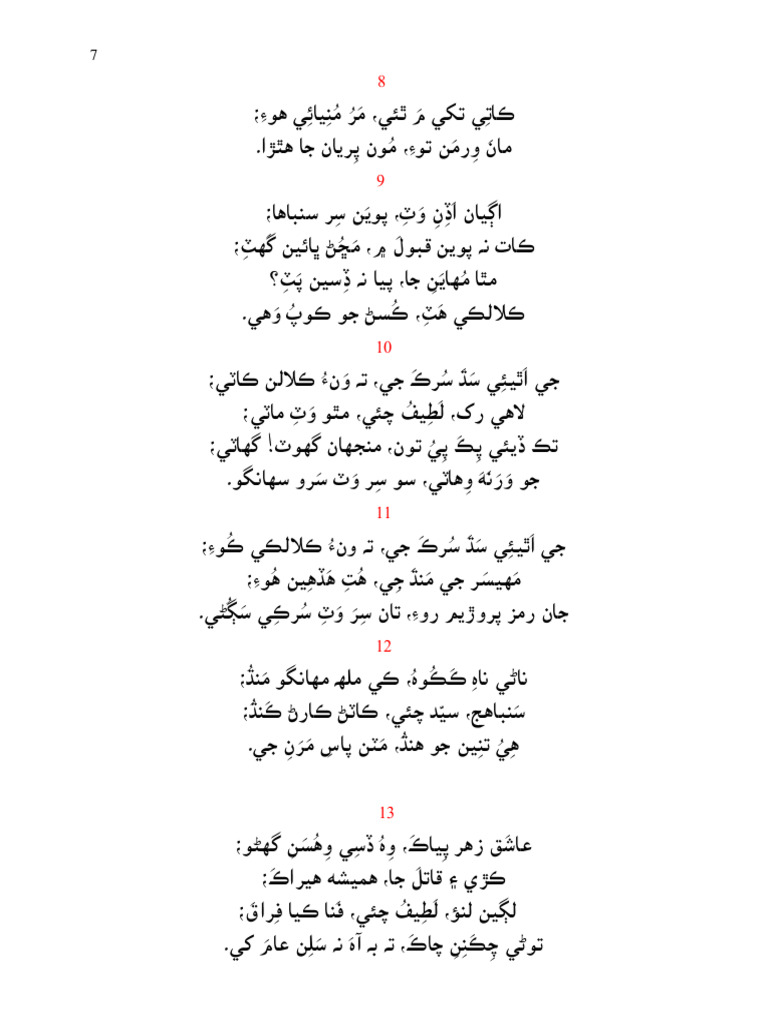 7
8
ڪاتِي تکي مَ ٿئي، مَرُ مُنِيائِي هوءِ؛
مانَ وِرمَن توءِ، مُون پِريان جا هٿڙا.
9
اڳيان اَڏِنِ وَٽِ، پويَن سِر سنباها؛
ڪات تہ پوين قبولَ ۾، مَڇُڻ ڀائين گَهٽِ؛
مٿا مُهايَنِ جا، پيا نہ ڏِسين پَٽِ؟
ڪلالڪي هَٽِ، ڪُسڻ جو ڪوپُ وَهي.
10
جي اَٿيئِي سَڌَ سُرڪَ جي، تہ وَنءُ ڪلالن ڪاٽي؛
لاهي رک، لَطِيفُ چئي، مٿو وَٽِ ماٽي؛
تڪ ڏيئي پِڪَ پِيُ تون، منجهان گهوٽ! گهاٽي؛
جو وَرَنَهَ وِهاٽي، سو سِر وَٽ سَرو سهانگو.
11
جي اَٿيئِي سَڌَ سُرڪَ جي، تہ ونءُ ڪلالڪي ڪُوءِ؛
مَهيسَر جي مَنڌَ جِي، هُتِ هَڏهِين هُوءِ؛
جان رمز پروڙيم روءِ، تان سِرَ وَٽِ سُرڪِي سَڳُڻي.
12
ناڻي ناهِ ڪَڪُوهُ، ڪي ملھہ مهانگو مَنڌُ؛
سَنباهج، سيّد چئي، ڪاٽڻ ڪارڻ ڪَنڌُ؛
هِيُ تنِين جو هنڌُ، مَٽن پاسِ مَرَنِ جي.
13
عاشَق زهر پِياڪَ، وِهُ ڏسِي وِهُسَنِ گهڻو؛
ڪڙي ۽ قاتلَ جا، هميشه هيراڪَ؛
لڳين لنؤ، لَطِيفُ چئي، فَنا ڪيا فِراقَ؛
توڻي چِڪَنِنِ چاڪَ، تہ بہ آهَ نہ سَلِن عامَ کي.